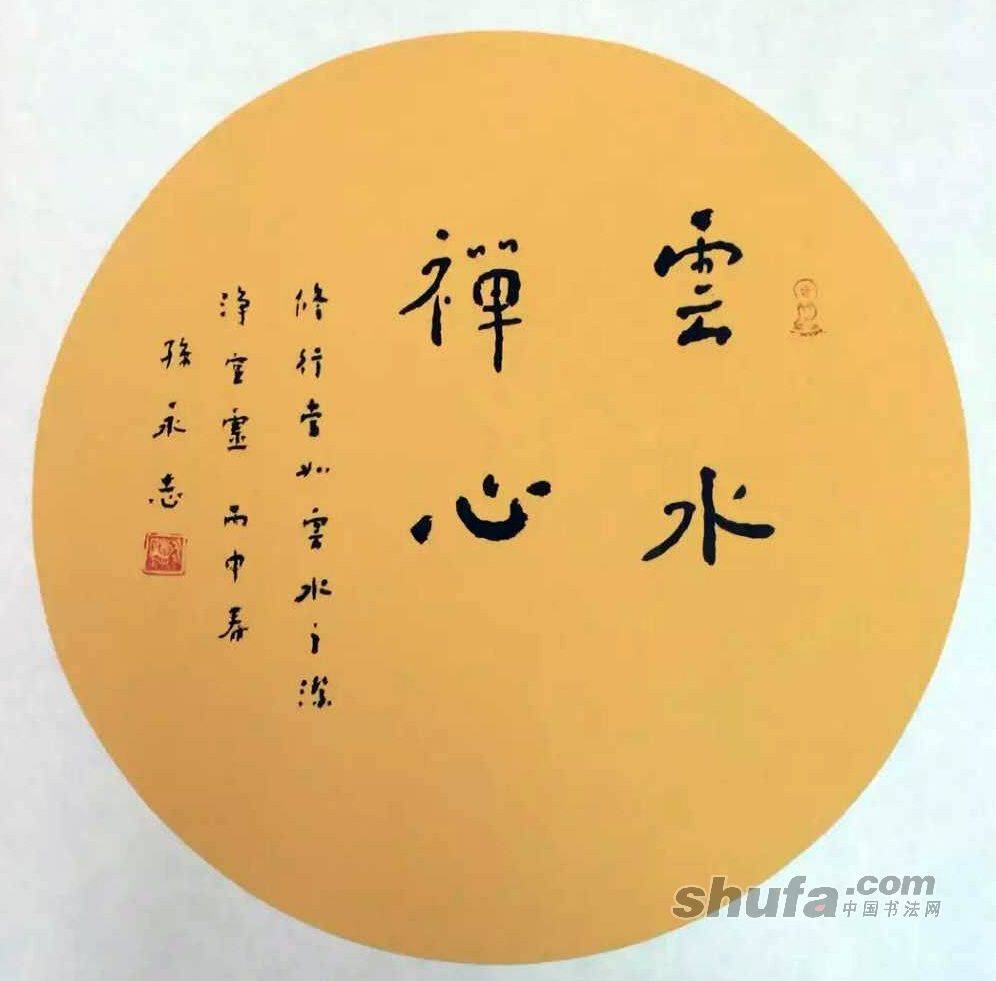 雲水
禪心
修行當如雲水之潔
淨空靈 丙申春
孫永志
shufa.com
中国书法网